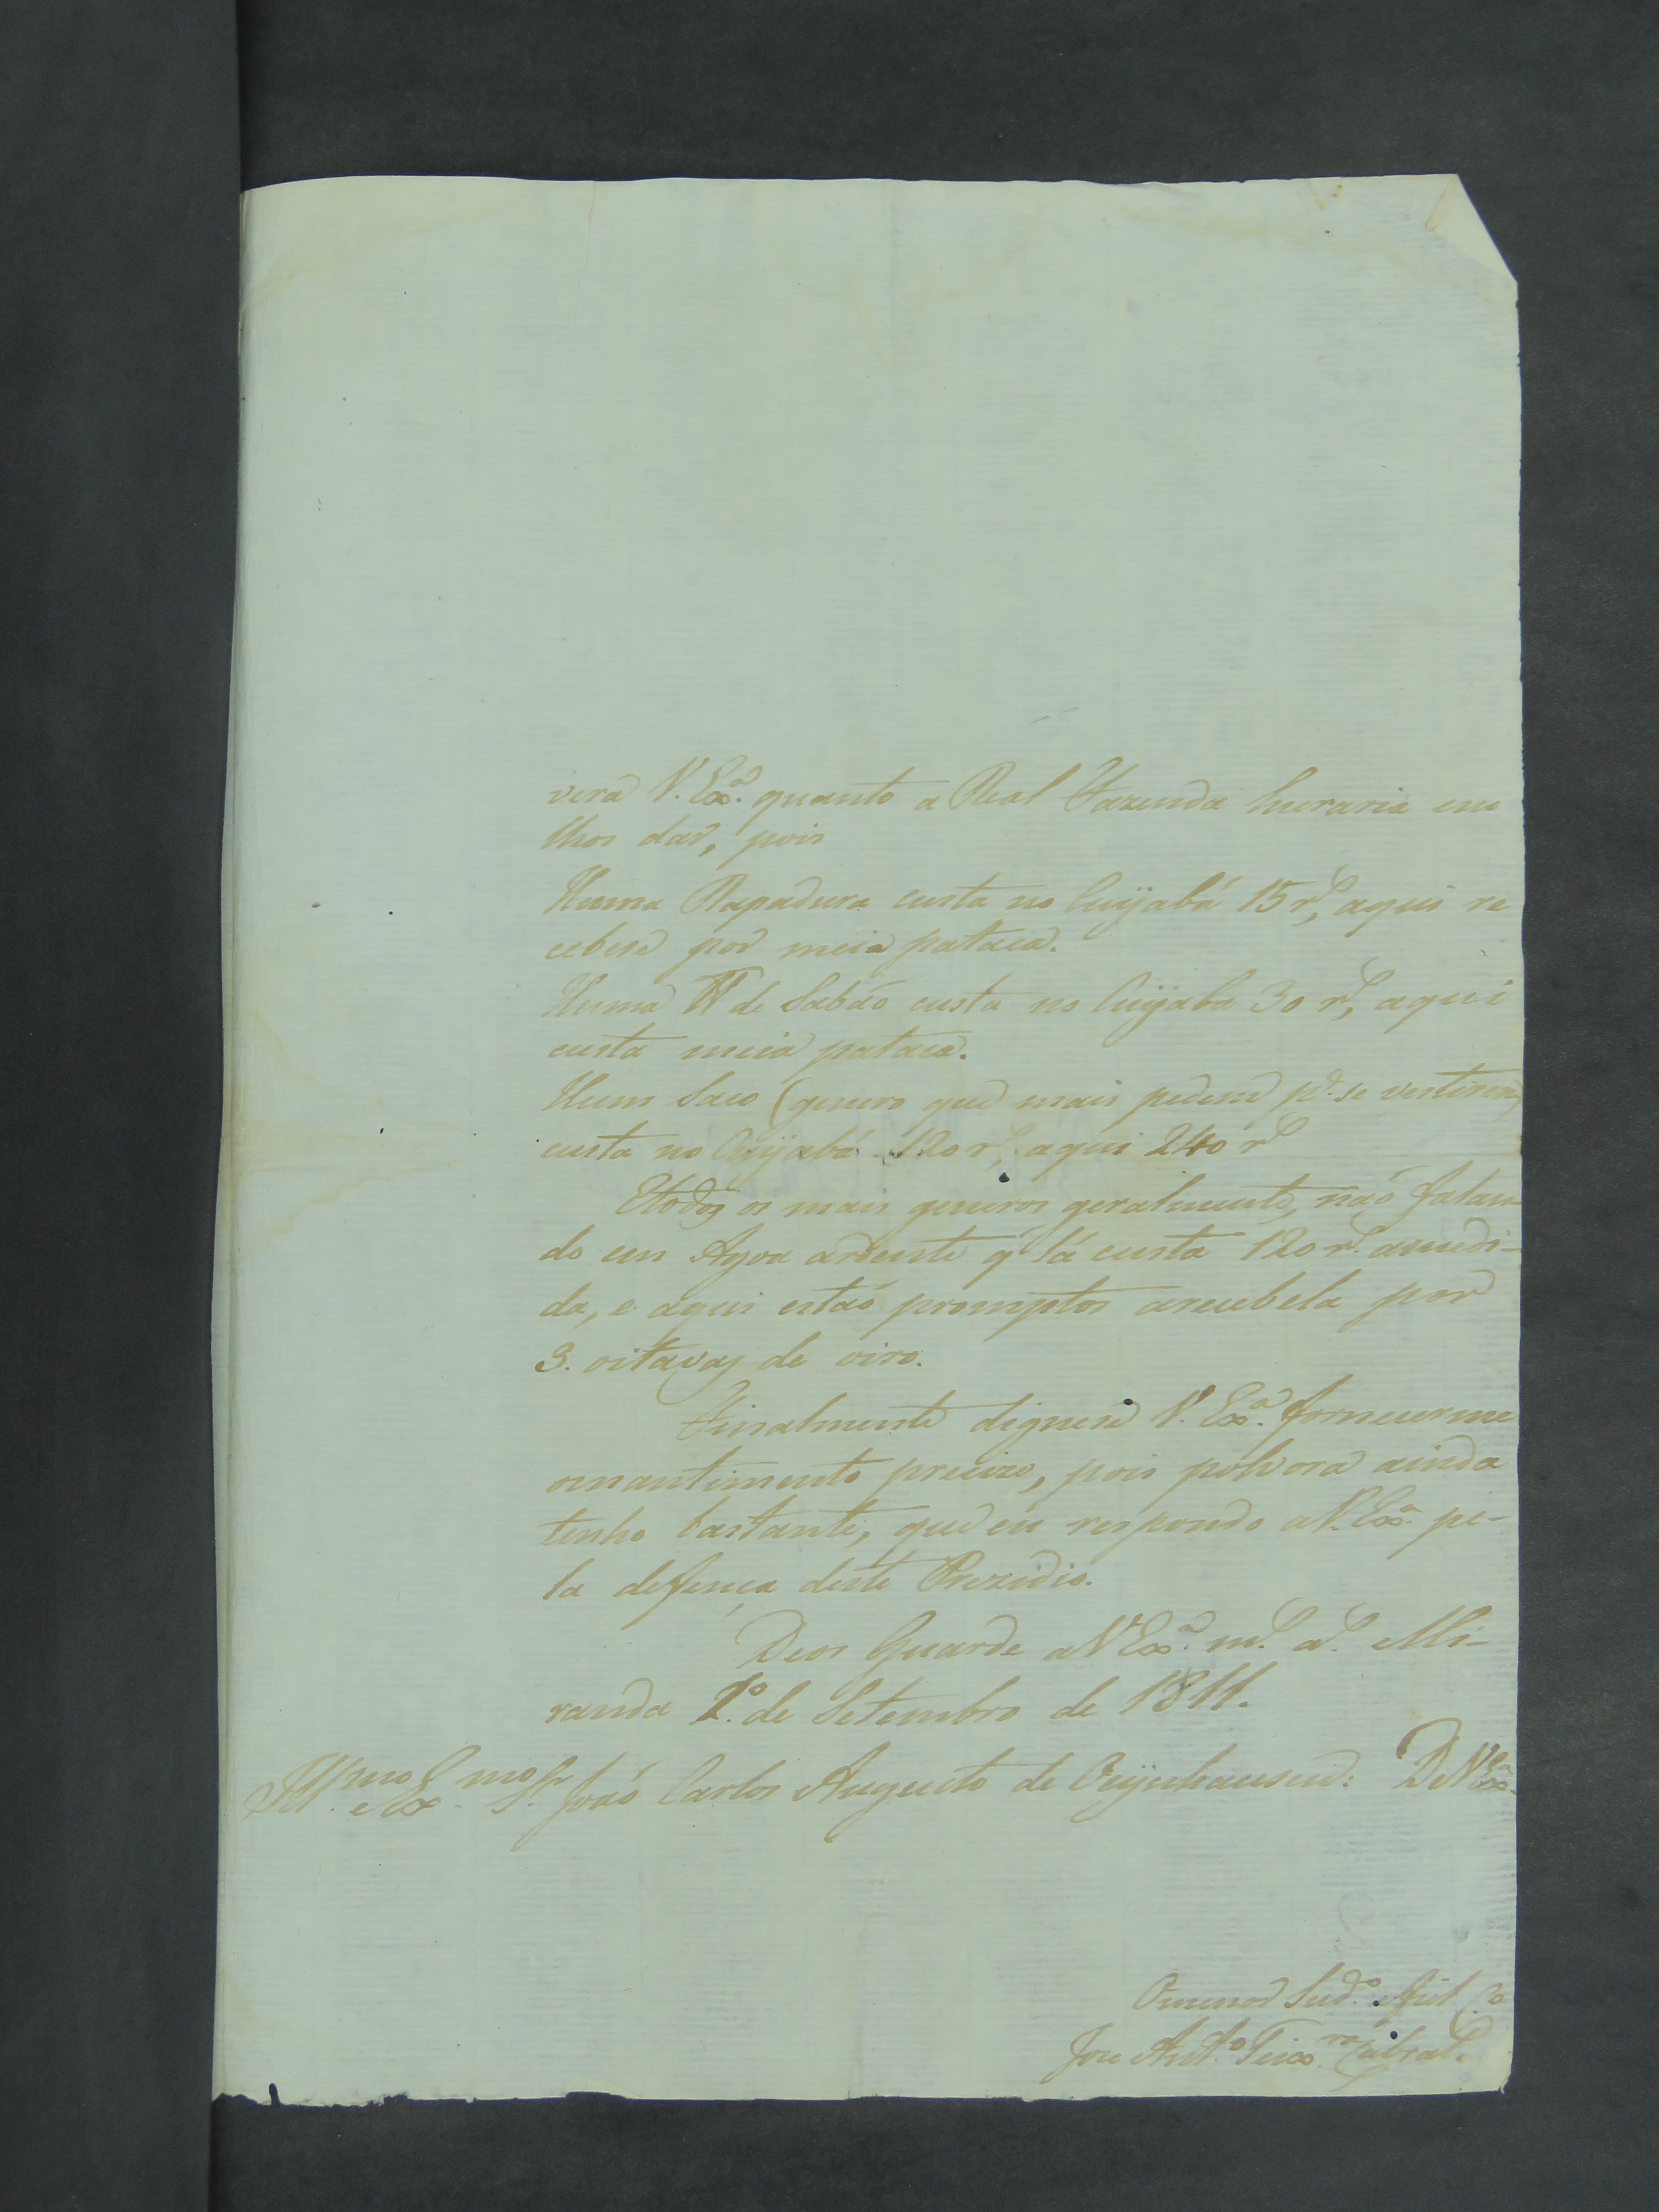 verá V. Exª. quanto a Real Fazenda lucraria em
lhos dar, pois
Huma Rapadura custa no Cuijabá 15 rs, aqui re
cebese por meia pataca.
Huma ℔ de Sabaõ custa no Cuijaba 30 rs, aqui
custa meia pataca.
Hum Saco (genero que mais pedem pª. se vestirem)
custa no Cuijabá 120 rs, aqui 240 rs
Etodos os mais generos geralmente, naõ falan-
do em Agoa ardente q' lá custa 120 rs. amedi-
da, e aqui estaõ promptos arecebela por
3. oitavas de oiro.
Finalmente dignese V. Exª. fornecerme
omantimento precizo, pois polvora ainda
tenho bastante, que eu respondo a V. Exª. pe-
la defença deste Prezidio.
Deos Guarde a V Exª. ms. as. Mi-
randa 1º. de Setembro de 1811.
Illmo. e Exmo. Sr. Joaõ Carlos Augusto de Oeijnhausen: D V Exª.
Omenor Sudº. Fiel Cº
Joze Antº. Teixrª. Cabral.